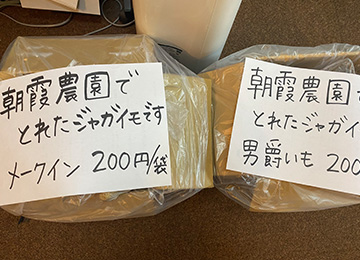 朝霞農園で
とれたジャガイモです
メークイン 200円/袋
朝霞農園
とれたジャガイ
男爵いも 200